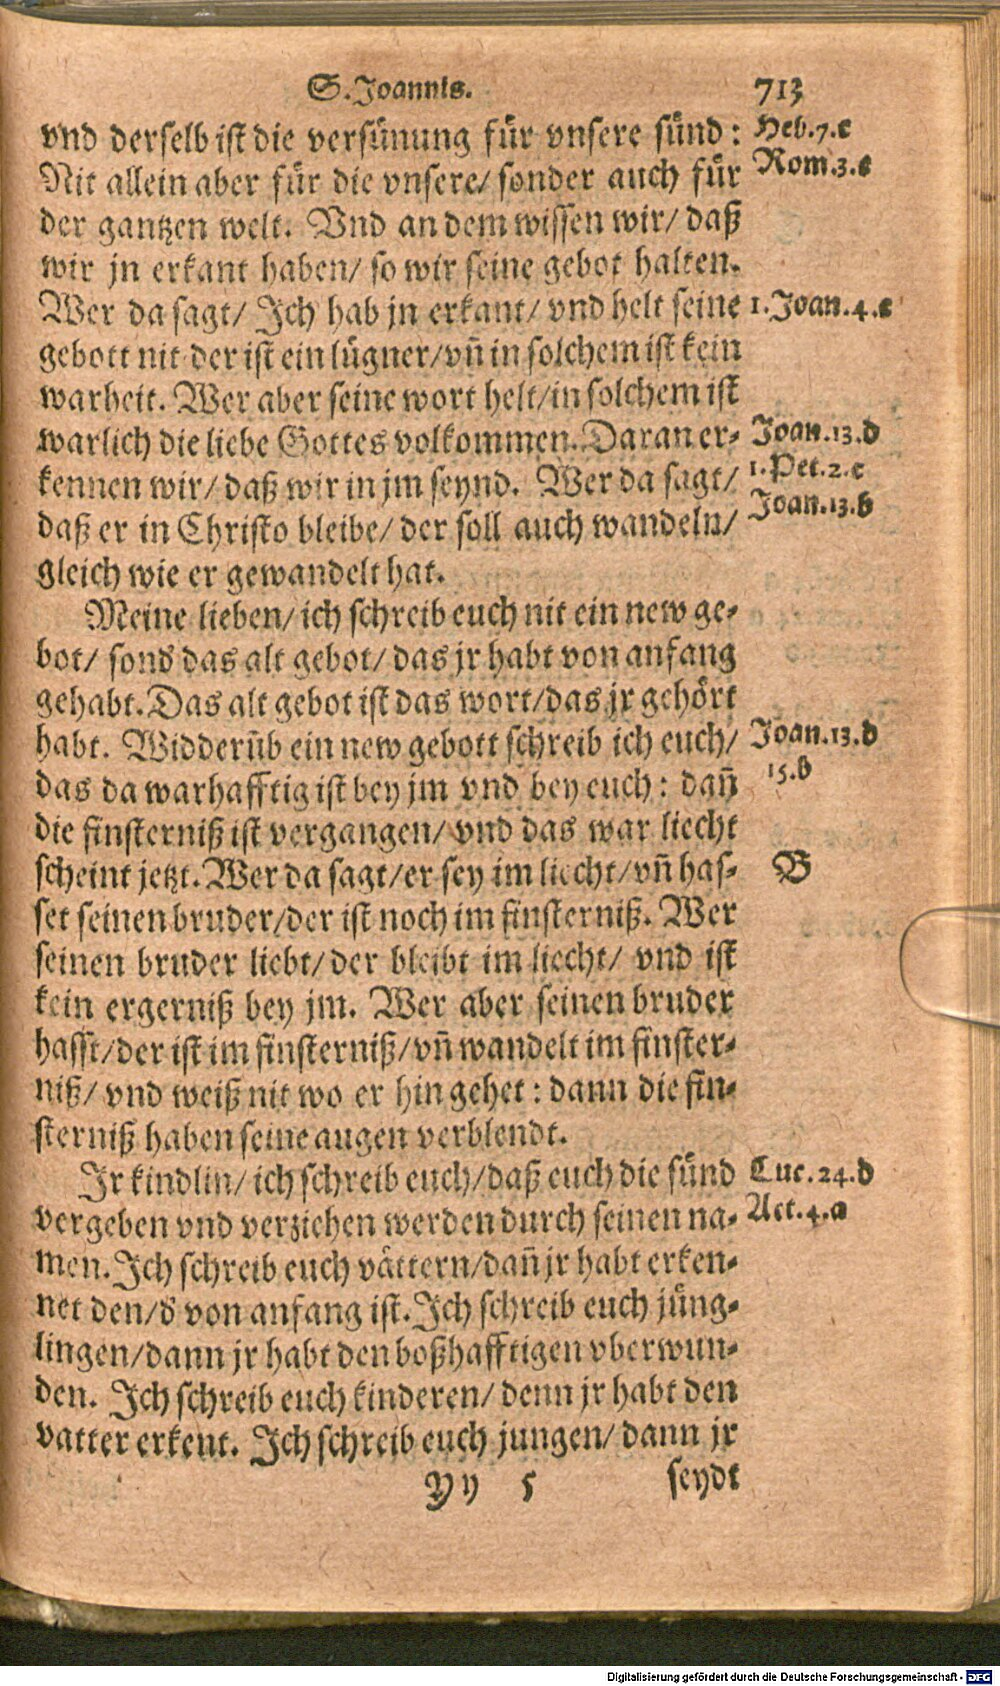 S. Joannis. 713
vnd derselb ist die versünung für vnsere sünd: Heb.7.c
Nit allein aber für die vnsere/ sonder auch für Rom.3.c
der gantzen welt. Vnd an dem wissen wir/ daß
wir jn erkant haben/ so wir seine gebot halten.
Wer da sagt/ Ich hab jn erkant/ vnd helt seine 1.Joan.4.c
gebott nit der ist ein lügner/ vñ in solchem ist kein
warheit. Wer aber seine wort helt/ in solchem ist
warlich die liebe Gottes volkommen. Daran er- Joan.13.d
kennen wir/ daß wir in jm seynd. Wer da sagt/ 1.Pet.2.c
daß er in Christo bleibe/ der soll auch wandeln/ Joan.13.b
gleich wie er gewandelt hat.
Meine lieben/ ich schreib euch nit ein new ge-
bot/ sond das alt gebot/ das jr habt von anfang
gehabt. Das alt gebot ist das wort/ das jr gehört
habt. Widderüb ein new gebott schreib ich euch/ Joan.13.d
das da warhafftig ist bey jm vnd bey euch: dañ 15.b
die finsterniß ist vergangen/ vnd das war liecht
scheint jetzt. Wer da sagt/ er sey im liecht/ vñ has- B
set seinen bruder/ der ist noch im finsterniß. Wer
seinen bruder liebt/ der bleibt im liecht/ vnd ist
kein ergerniß bey jm. Wer aber seinen bruder
hasst/ der ist im finsterniß/ vñ wandelt im finster-
niß/ vnd weiß nit wo er hin gehet: dann die fin-
sterniß haben seine augen verblendt.
Ir kindlin/ ich schreib euch/ daß euch die sünd Luc.24.d
vergeben vnd verziehen werden durch seinen na- Act.4.a
men. Ich schreib euch vättern/ dañ jr habt erken-
net den/ d von anfang ist. Ich schreib euch jüng-
lingen/ dann jr habt den boßhafftigen vberwun-
den. Ich schreib euch kinderen/ denn jr habt den
vatter erkent. Ich schreib euch jungen/ dann jr
Yy 5 seydt
Digitalisierung gefördert durch die Deutsche Forschungsgemeinschaft - DFG